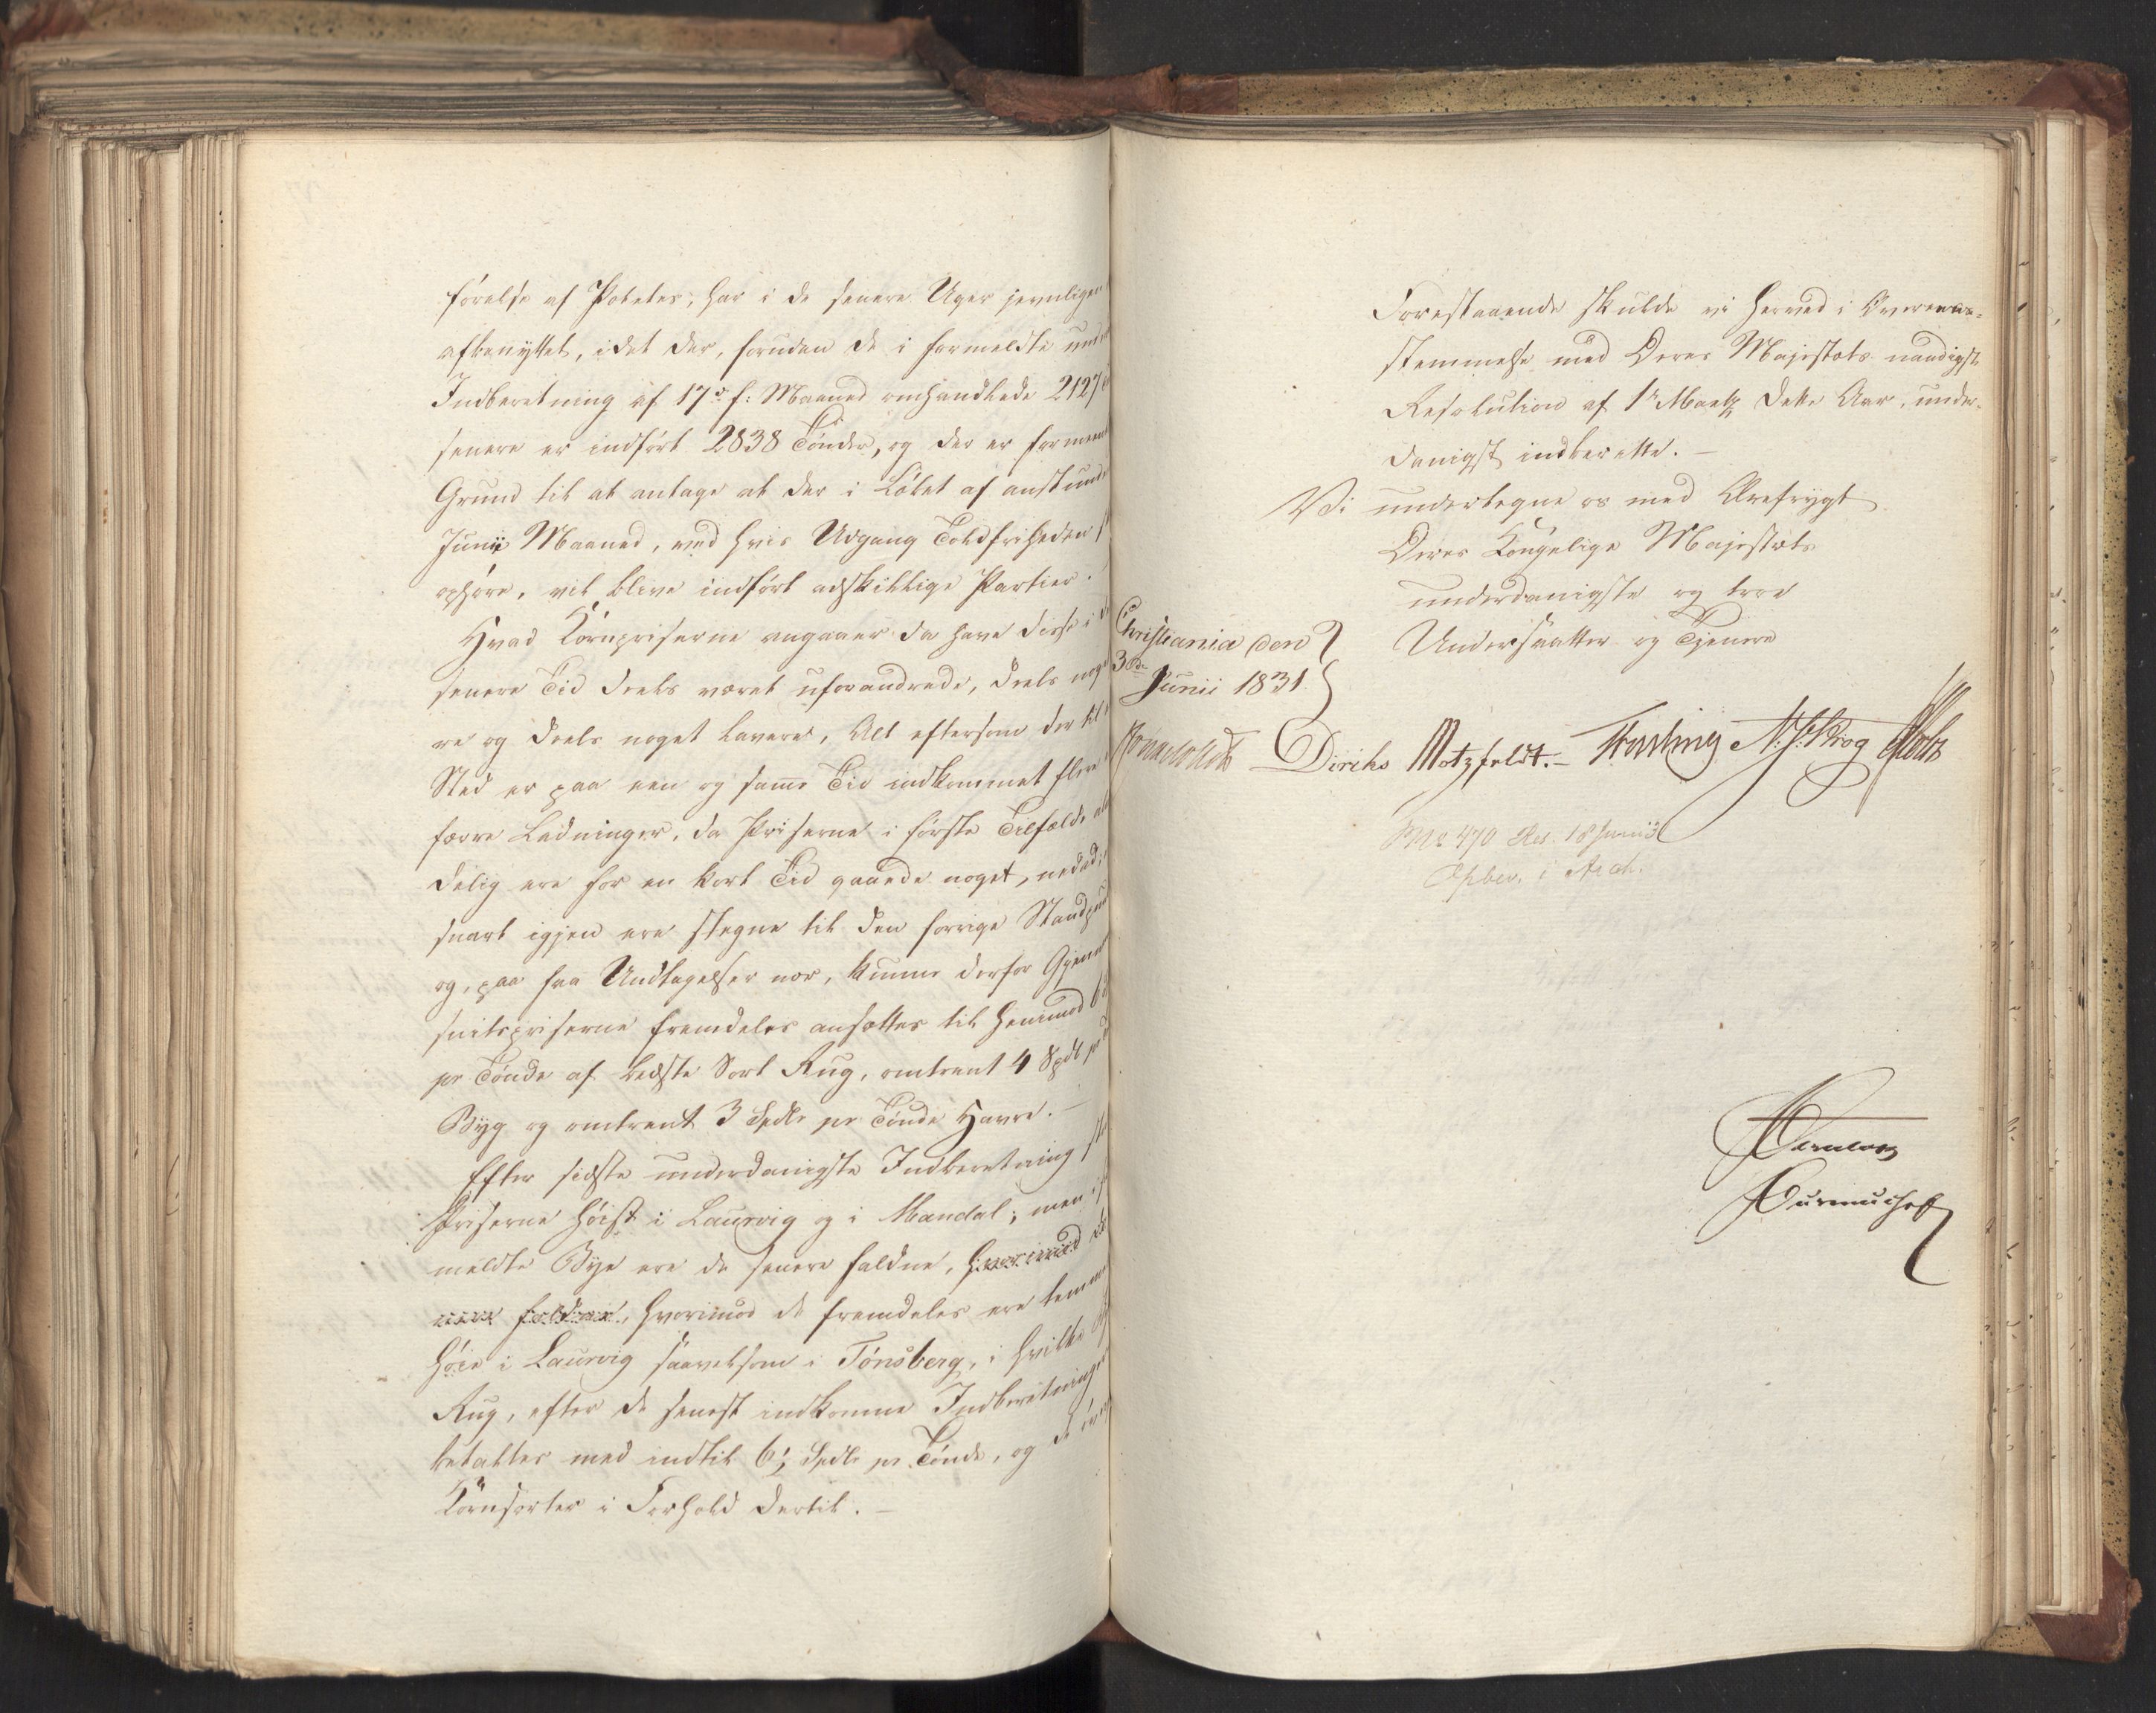 førelse af Poteter, har i de senere Uger jevnligen
afbenyttet, idet der, foruden de i formeldte und
Indberetning af 17de f: Maaned omhandlede 2127
senere er indført 2838 Tønder, og der er formeent
Grund til at antage at der i Løbet af anstund
Junii Maaned, ved hvis Udgang Toldfriheden
ophøre, vil blive indført adskillige Partier.
Hvad Kornpriserne angaaer da have disse i d
senere Tid deels været uforandrede, deels nog
re og deels noget lavere, Alt eftersom der til
Sted er paa een og samme Tid indkommet flere
færre Ladninger, da Priserne i første Tilfælde
delig ere for en kort Tid gaaede noget, nedad,
snart igjen ere stegne til den forrige Standpun
og, paa faa Undtagelser nær, kunne derfor Gjenn
snitspriserne fremdeles ansættes til henimod 6
pr Tønde af bedste Sort Rug, omtrent 4 Spd pr
Byg og omtrent 3 Spdlr pr Tønde Havre. –
Efter sidste underdanigste Indberetning
Priserne høist i Laurvig og i Mandal; men i
meldte Bye ere de senere faldne, hvorimod de
ere faldne, hvorimod de fremdeles ere temm
høie i Laurvig saavelsom i Tønsberg, i hvilke
Rug, efter de senest indkomne Indberetninger
betaltes med indtil 6½ Spdlr pr Tønde, og de øvr
Kornsorter i Forhold dertil. –
Forestaaende skulde vi herved i Overeens-
stemmelse med Deres Majestæts naadigste
Resolution af 1ste Martz dette Aar, under-
danigst indberette. –
Vi undertegne os med Ærefrygt
Deres Kongelige Majestæts
underdanigste og troe
Undersaatter og Tjenere
Christiania den
3die Junii 1831.
Sommerhielm Diriks Motzfeldt. – Fasting N. J. Krog Holst
No 470 Res. 18 Junii
Opbev. i Arch.